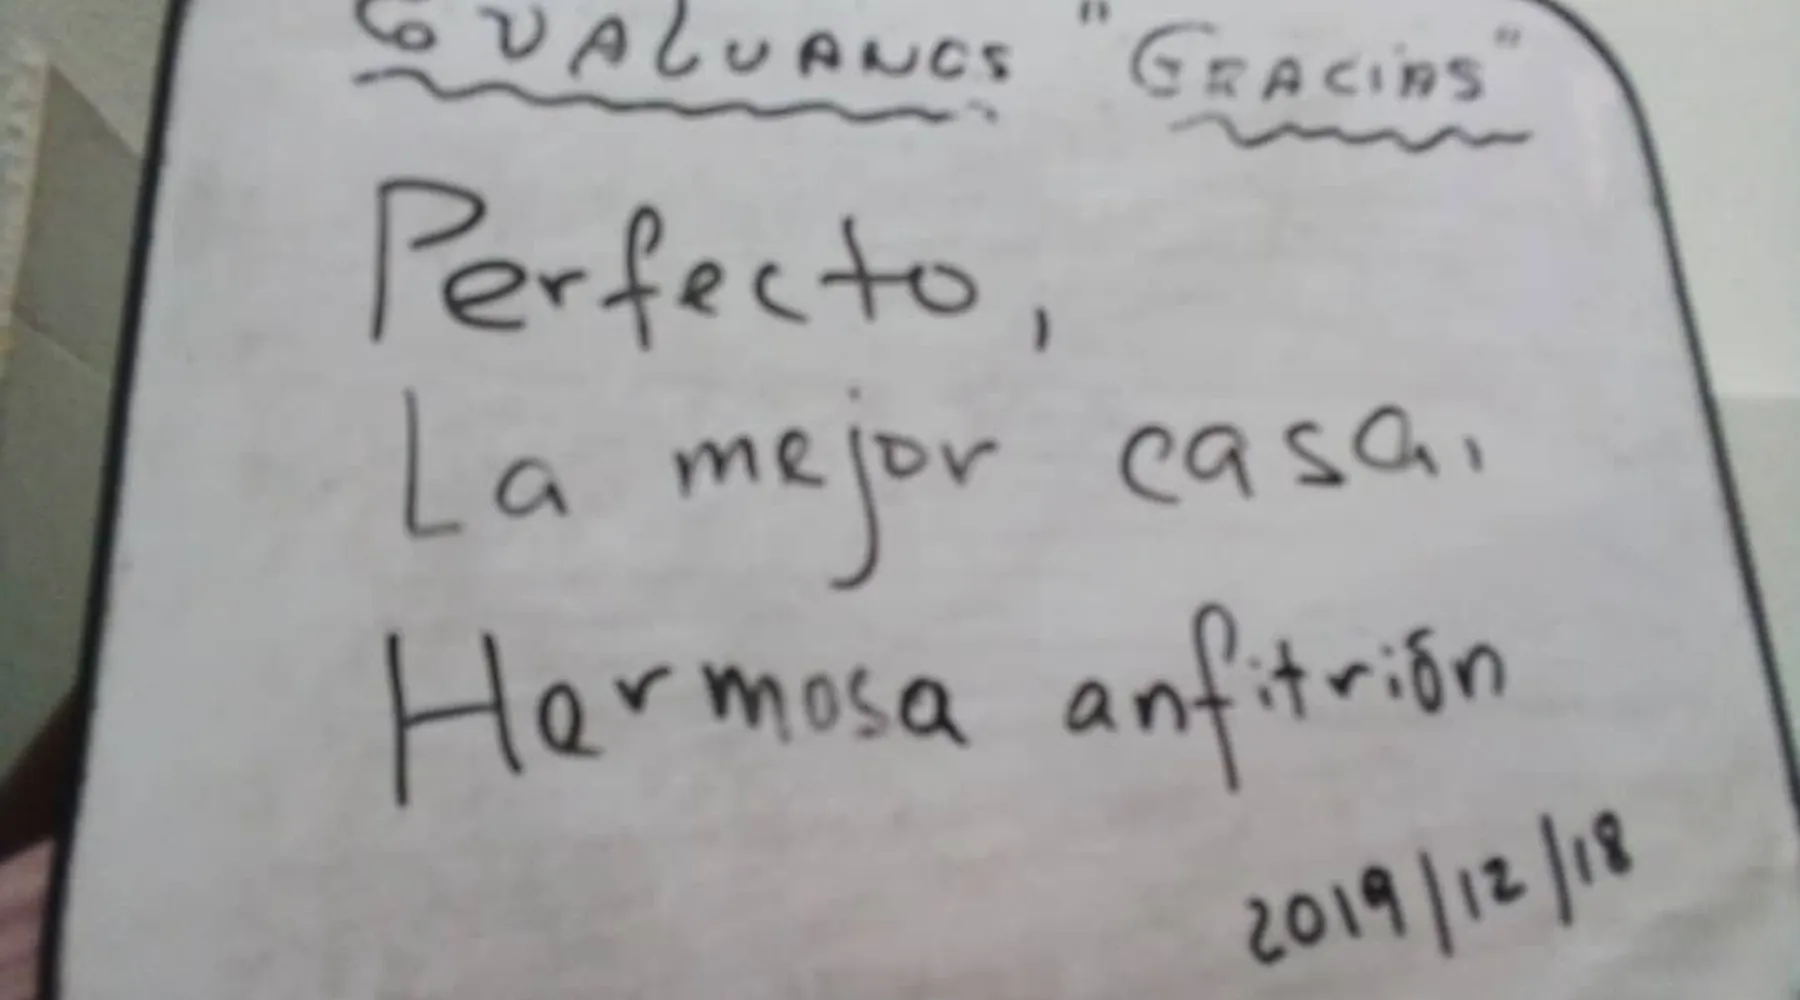 EVALUANOS "GRACIAS"
Perfecto,
La mejor casa,
Hermosa anfitrión
2019/12/18